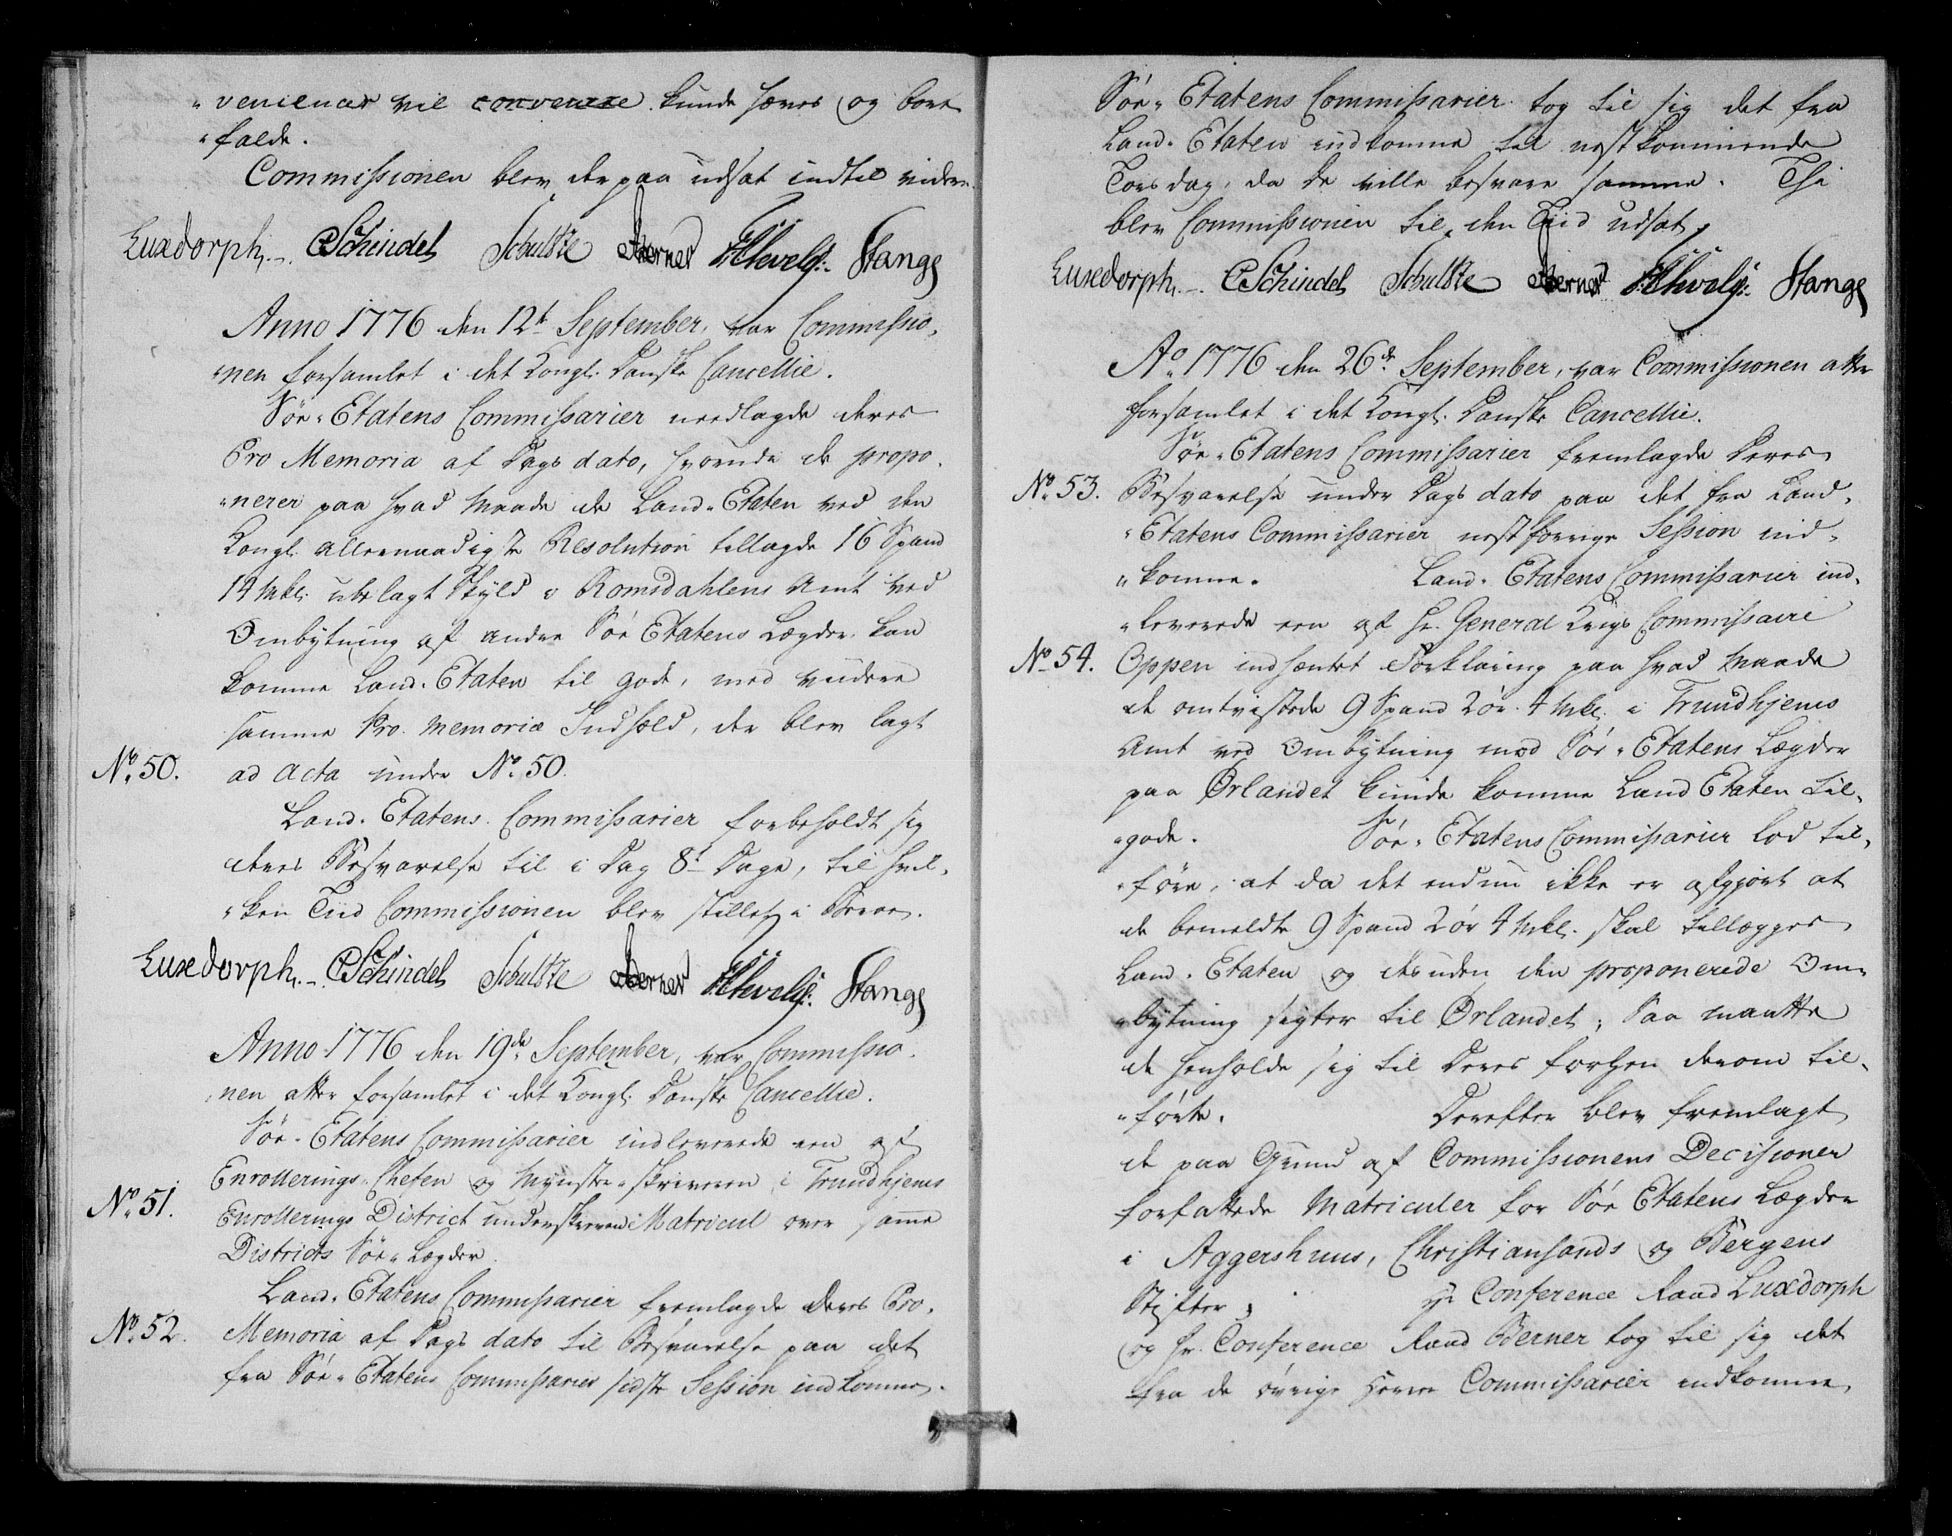 „veniencer vil convenere kunde hæves og bort
„falde.
Commissionen blev derpaa udsat indtil videre.
Luxdorph. Schindel Schultze Berner Stange
Anno 1776 den 12t September, var Commissio„
„nen forsamlet i det Kongl. Danske Cancellie.
Søe„Etatens Commissarier needlagde deres
Pro Memoria af Dags dato, hvorudi de propo„
„nerer paa hvad Maade de Land„Etaten ved den
Kongl. allernaadigste Resolution tillagde 16 Spand
14 Mkl: ubelagt Skyld i Romsdahlens Amt ved
Ombytning af andre Søe Etatens Lægder kan
komme Land„Etaten til gode, med videre
samme Pro Memoria Indhold, der blev lagt
No. 50. ad acta under No. 50.
Land„Etatens Commissarier forbeholdt sig
deres Besvarelse til i Dag 8te Dage, til hvil„
„ken Tiid Commissionen blev stillet i Beroe.
Luxdorph. Schindel Schultze Berner Stange
Anno 1776 den 19de September, var Commissio„
„nen atter forsamlet i det Kongl. Danske Cancellie.
Søe„Etatens Commissarier indleverede een af
Enrollerings„Chefen og Mynster„skriveren i Trundhjems
No. 51. Enrollerings District underskreven Matricul over samme
Districts Søe„Lægder.
Land„Etatens Commissarier fremlagde deres Pro„
No. 52. Memoria af Dags dato til Besvarelse paa det
fra Søe„Etatens Commissarier sidste Session indkomne.
Søe„Etatens Commissarier tog til sig det fra
Land„Etaten indkomne til nestkommende
Torsdag, da de ville besvare samme. Thi
blev Commissionen til den Tiid udsat.
Luxdorph. Schindel Schultze Berner Stange
Ao. 1776 den 26de September, var Commissionen atter
forsamlet i det Kongl. Danske Cancellie.
Søe„Etatens Commissarier fremlagde Deres
No. 53. Besvarelse under Dags dato paa det fra Land„
„Etatens Commissarier nestforrige Session ind„
„komne. Land„Etatens Commissarier ind„
„leverede een af Hr. General Krigs Commissaire
No. 54. Oppen indhentet Forklaring paa hvad Maade
de omtvistede 9 Spand 2 ør 4 Mkl. i Trundhjems
Amt ved Ombytning med Søe„Etatens Lægder
paa Ørlandet kunde komme Land Etaten til„
„gode. Søe„Etatens Commissarier lod til„
„føre, at da det endnu ikke er afgjort at
de bemeldte 9 Spand 2 ør 4 Mkl. skal tillægges
Land„Etaten og desuden den proponerede Om„
„bytning sigter til Ørlandet; Saa maatte
de henholde sig til Deres forhen derom til„
„førte. Derefter blev fremlagt
de paa Grund af Commissionens Decisioner
forfattede Matriculer for Søe Etatens Lægder
i Aggershuus, Christiansands og Bergens
Stifter; Hr. Conference Raad Luxdorph
og Hr. Conference Raad Berner tog til sig det
fra de øvrige Herrer Commissarier indkomne